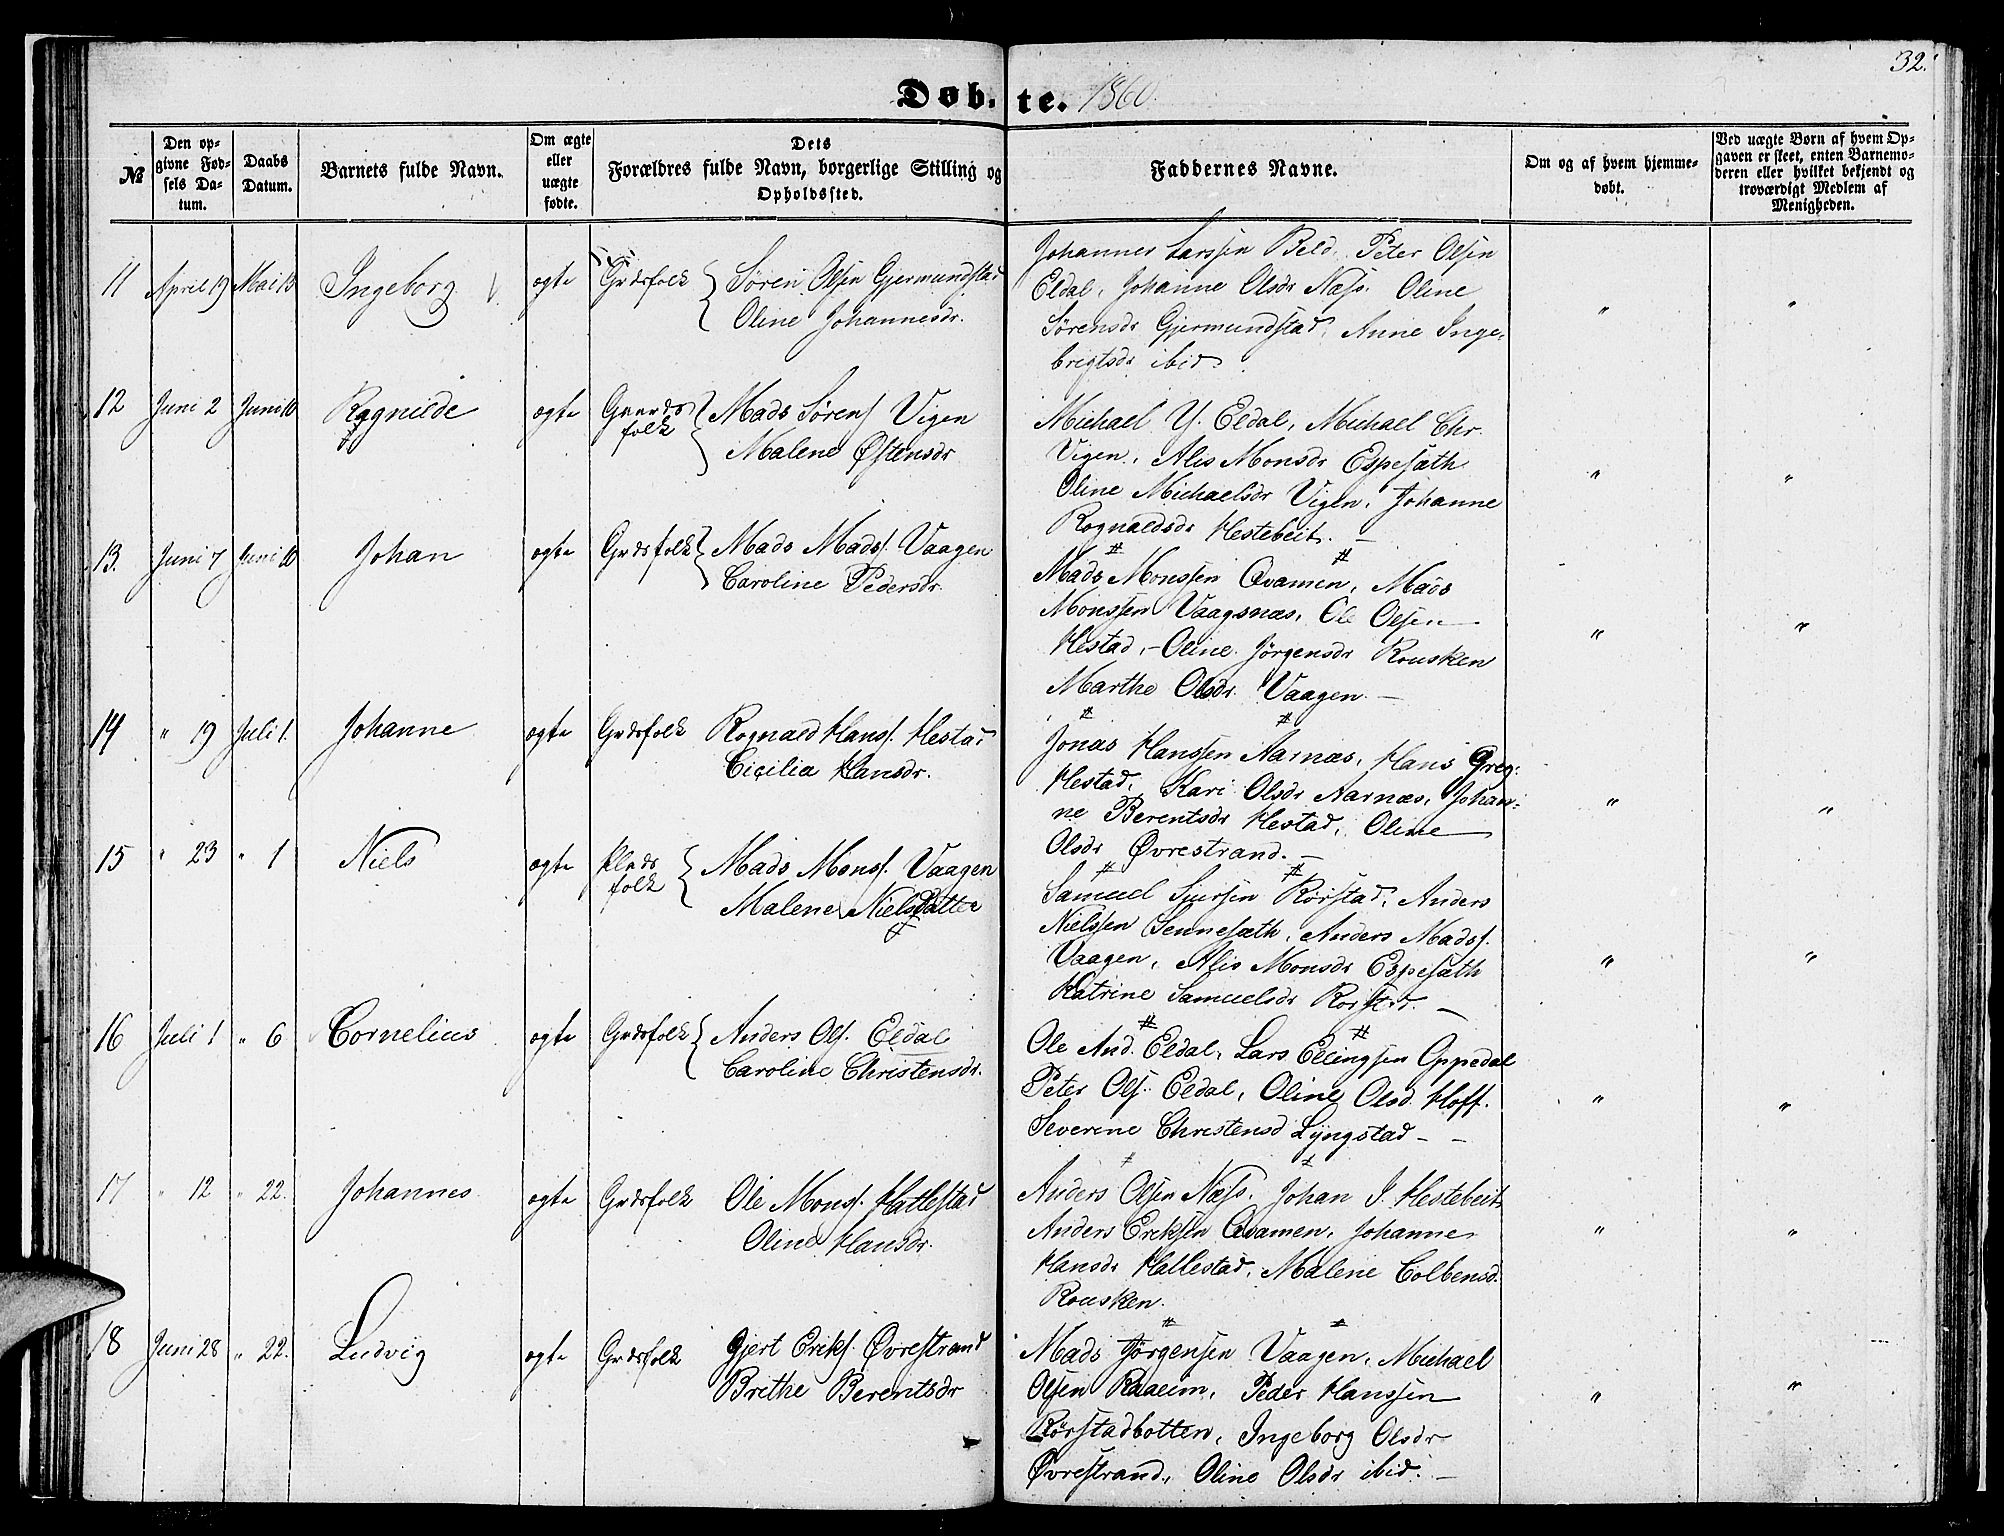 32.
Døbte. 1860.
№
Den opgivne Fødsels Datum.
Daabs Datum.
Barnets fulde Navn.
Om ægte eller uægte fødte.
Dets Forældres fulde Navn, borgerlige Stilling og Opholdssted.
Faddernes Navne.
Om og af hvem hjemmedøbt.
Ved uægte Børn af hvem Opgaven er skeet, enten Barnemoderen eller hvilket bekjendt og troværdigt Medlem af Menigheden.
11 April 19 Mai 13 Ingeborg ogte Grdsfolk Søren Olsen Gjermundstad
Oline Johannesdr.
Johannes Larssen Beld, Peter Olsen
Eldal, Johanne Olsdr Næss. Oline
Sørensdr Gjermundstad, Anne Inge-
brigtsdr ibid. " "
12 Juni 2 Juni 10 Ragnilde ogte Gaards
folk Mads Sørens Vigen
Malene Østensdr
Michael Y. Eldal, Michael Chr.
Vigen, Alis Monsdr Espesæth
Oline Michaelsdr Vigen, Johanne
Rognaldsdr Hestebeit. – " "
13. Juni 7 Juni 10 Johan ogte Grdsfolk Mads Mads. Vaagen
Caroline Pedersdr.
Mads Monssen Qvamen, Mads
Monssen Vaagsnæs, Ole Olsen
Hestad, – Oline Jørgensdr Rousken
Marthe Olsdr. Vaagen. – " "
14 " 19 Juli 1. Johanne ogte Grdsfolk Rognald Hans. Hestad
Cicilia Hansdr.
Jonas Hanssen Aarnæs, Hans Greg:
Hestad, Kari Olsdr Aarnæs, Johan-
ne Berentsdr Hestad, Oline
Olsdr Øvrestrand. – " "
15 " 23 " 1 Niels ogte Plads
folk Mads Mons. Vaagen
Malene Nielsdatter
Samuel Sjursen Rørstad, Anders
Nielssen Sennesæth, Anders Mads.
Vaagen, Alis Monsdr Espesæth
Katrine Samuelsdr Rørstad. – " "
16 Juli 1 " 6 Cornelius ogte Grdsfolk Anders Ols. Eldal
Caroline Christensdr.
Ole And. Eldal, Lars Ellingsen Oppedal
Peter Ols. Eldal, Oline Olsd. Hoff.
Severine Christensd Lyngstad – – " "
17 " 12 " 22. Johannes ogte Grdsfolk Ole Mons. Hatlestad
Oline Hansdr.
Anders Olsen Næss, Johan J. Hestebeit
Anders Eriksen Qvamen, Johanne
Hansdr Hatlestad, Malene Colbensd.
Rousken. " "
18 Juni 28 " 22. Ludvig ogte Grdsfolk Gjert Eriks. Øvrestrand
Brithe Berentsdr
Mads Jørgensen Vaagen, Michael
Olsen Raaeim, Peder Hanssen
Rørstadbotten, Ingeborg Olsdr
Øvrestrand, Oline Olsdr ibid. – " "